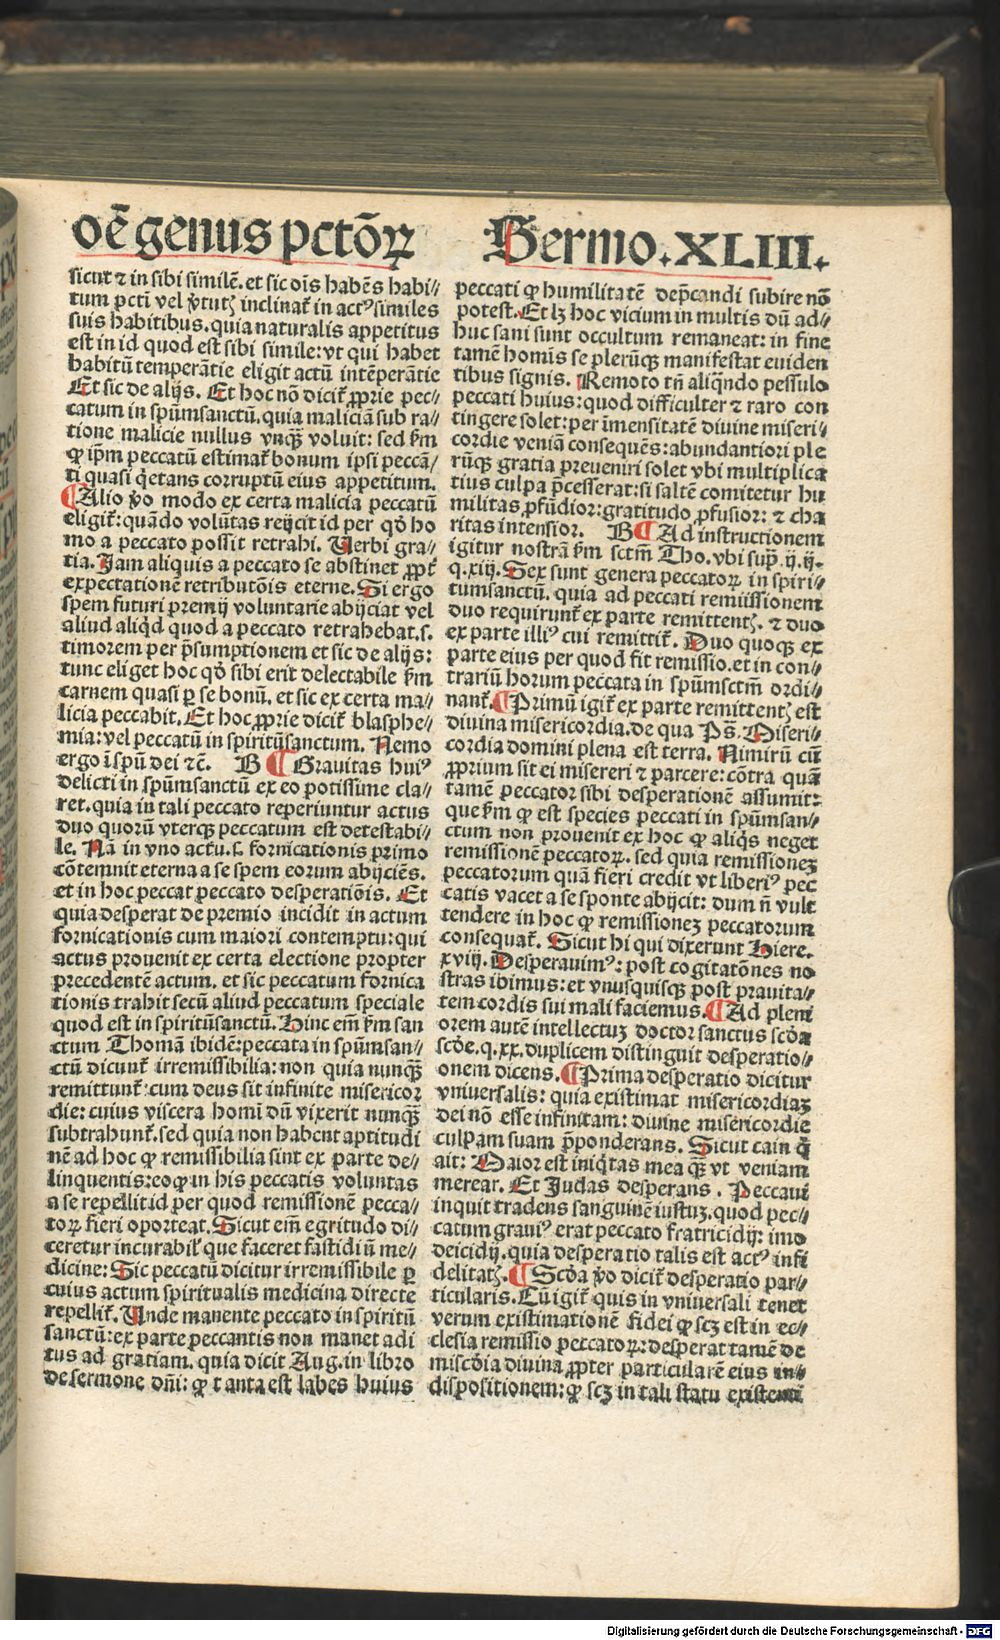 oē genus pctōꝝ Sermo.XLIII.
sicut ⁊ in sibi similē.et sic oīs habēs habi//
tum pcti vel ꝟtutꝭ inclinat̉ in actꝰ similes
suis habitibus.quia naturalis appetitus
est in id quod est sibi simile:vt qui habet
habitū temperātie eligit actū intēperātie
Et sic de alijs. Et hoc nō dicit̉ ꝓprie pec//
catum in spūmsanctū.quia maliciā sub ra//
tione malicie nullus vnqꝫ̄ voluit: sed ẜm
ꝙ ip̄m peccatū estimat̉ bonum ipsi peccā//
ti quasi q̄etans corruptū eius appetitum.
¶Alio ꝟo modo ex certa malicia peccatū
eligit̉:quādo volūtas reijcit id per qd̕ ho
mo a peccato possit retrahi. Uerbi gra//
tia.Jam aliquis a peccato se abstinet ꝓpt̉
expectationē retributōis eterne.Si ergo
spem futuri premij voluntarie abijciat vel
aliud aliqd quod a peccato retrahebat.s.
timorem per p̄sumptionem et sic de alijs:
tunc eliget hoc qd̕ sibi erit delectabile ẜm
carnem quasi ꝑ se bonū.et sic ex certa ma//
licia peccabit.Et hoc ꝓprie dicit̉ blasphe//
mia:vel peccatū in spiritūsanctum. Nemo
ergo ī spū dei ⁊c̄. B ¶Grauitas huiꝰ
delicti in spūmsanctū ex eo potissime cla//
ret.quia in tali peccato reperiuntur actus
duo quorū vterqꝫ peccatum est detestabi//
le. Nā in vno actu.s. fornicationis primo
cōtemnit eterna a se spem eorum abijciēs.
et in hoc peccat peccato desperatiōis. Et
quia desperat de premio incidit in actum
fornicationis cum maiori contemptu:qui
actus prouenit ex certa electione propter
precedentē actum. et sic peccatum fornica
tionis trahit secū aliud peccatum speciale
quod est in spiritūsanctū. Hinc em̄ ẜm san
ctum Thomā ibidē:peccata in spūmsan//
ctū dicunt̉ irremissibilia: non quia nunqꝫ̄
remittunt̉:cum deus sit infinite misericor
die: cuius viscera homī dū vixerit nunqꝫ̄
subtrahunt̉.sed quia non habent aptitudi
nē ad hoc ꝙ remissibilia sint ex parte de//
linquentis:eo ꝙ in his peccatis voluntas
a se repellit id per quod remissionē pecca//
toꝝ fieri oporteat.Sicut em̄ egritudo di//
ceretur incurabil̕ que faceret fastidiū me//
dicine: Sic peccatū dicitur irremissibile ꝑ
cuius actum spiritualis medicina directe
repellit̉. Unde manente peccato in spiritū
sanctū:ex parte peccantis non manet adi
tus ad gratiam. quia dicit Aug.in libro
de sermone dn̄i: ꝙ tanta est labes huius
peccati ꝙ humilitatē dep̄candi subire nō
potest.Et lꝫ hoc vicium in multis dū ad//
huc sani sunt occultum remaneat: in fine
tamē homīs se plerūqꝫ manifestat euiden
tibus signis. Remoto tn̄ aliqn̄do pessulo
peccati huius:quod difficulter ⁊ raro con
tingere solet:per īmensitatē diuine miseri//
cordie veniā consequēs:abundantiori ple
rūqꝫ gratia preueniri solet vbi multiplica
tius culpa p̄cesserat:si saltē comitetur hu
militas ꝓfūdior:gratitudo ꝓfusior: ⁊ cha
ritas intensior. B¶Ad instructionem
igitur nostrā ẜm sctm̄ Tho.vbi sup̄ ij.ij.
q.xiij.Sex sunt genera peccatoꝝ in spiri//
tumsanctū. quia ad peccati remissionem
duo requirunt̉ ex parte remittentꝭ. ⁊ duo
ex parte illiꝰ cui remittit̉. Duo quoqꝫ ex
parte eius per quod fit remissio.et in con//
trariū horum peccata in spūmsctm̄ ordi//
nant̉.¶Primū igit̉ ex parte remittentꝭ est
diuina misericordia.de qua Ps̄.Miseri//
cordia domini plena est terra. Nimirū cū
ꝓprium sit ei misereri ⁊ parcere:cōtra quā
tamē peccator sibi desperationē assumit:
que ẜm ꝙ est species peccati in spūmsan//
ctum non prouenit ex hoc ꝙ aliqs neget
remissionē peccatoꝝ. sed quia remissionez
peccatorum quā fieri credit vt liberiꝰ pec
catis vacet a se sponte abijcit: dum n̄ vult
tendere in hoc ꝙ remissionez peccatorum
consequat̉. Sicut hi qui dixerunt Hiere.
xviij. Desperauimꝰ: post cogitatōnes no
stras ibimus:et vnusquisqꝫ post prauita//
tem cordis sui mali faciemus.¶Ad pleni
orem autē intellectuz doctor sanctus scd̕a
scd̕e.q.xx.duplicem distinguit desperatio//
onem dicens.¶Prima desperatio dicitur
vniuersalis: quia existimat misericordiaz
dei nō esse infinitam: diuine misericordie
culpam suam p̄ponderans. Sicut cain q̄
ait: Maior est iniqtas mea qꝫ̄ vt veniam
merear. Et Judas desperans. Peccaui
inquit tradens sanguinē iustuz.quod pec//
catum grauiꝰ erat peccato fratricidij: imo
deicidij.quia desperatio talis est actꝰ infi
delitatꝭ.¶Scd̕a ꝟo dicit̉ desperatio par//
ticularis.Cū igit̉ quis in vniuersali tenet
verum existimationē fidei ꝙ scꝫ est in ec//
clesia remissio peccatoꝝ:desperat tamē de
miscd̕ia diuina ꝓpter particularē eius in//
dispositionem:ꝙ scꝫ in tali statu existenti
Digitalisierung gefördert durch die Deutsche Forschungsgemeinschaft - DFG